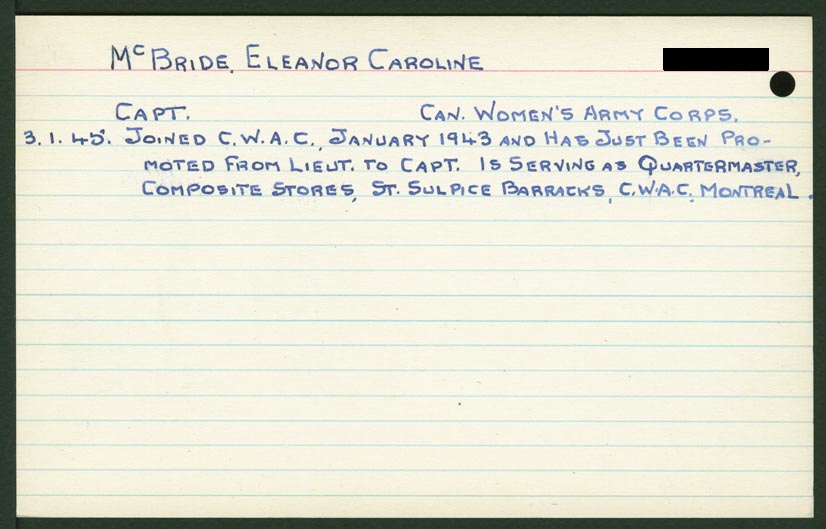 McBRIDE, ELEANOR CAROLINE
CAPT. CAN. WOMEN'S ARMY CORPS.
3.1.45. JOINED C.W.A.C., JANUARY 1943 AND HAS JUST BEEN PRO-
MOTED FROM LIEUT. TO CAPT. IS SERVING AS QUARTERMASTER,
COMPOSITE STORES, ST. SULPICE BARRACKS, C.W.A.C. MONTREAL.